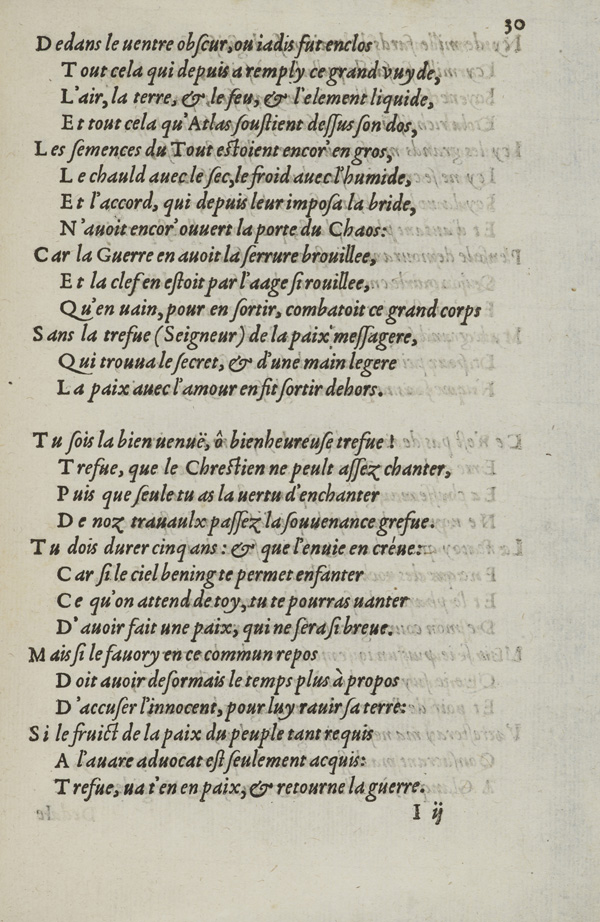 30
Dedans le uentre obſcur, ou iadis fut enclos
Tout cela qui depuis a remply ce grand vuyde,
L'air, la terre, & le feu, & l'element liquide,
Et tout cela qu'Atlas ſouſtient deſſus ſon dos,
Les ſemences du Tout eſtoient encor' en gros,
Le chauld auec le ſec, le froid auec l'humide,
Et l'accord, qui depuis leur impoſa la bride,
N'auoit encor' ouuert la porte du Chaos:
Car la Guerre en auoit la ſerrure brouillee,
Et la clef en eſtoit par l'aage ſi rouillee,
Qu'en uain, pour en ſortir, combatoit ce grand corps
Sans la trefue (Seigneur) de la paix meſſagere,
Qui trouua le ſecret, & d'une main legere
La paix auec l'amour en fit ſortir dehors.
Tu ſois la bien uenuë, ô bienheureuſe trefue!
Trefue, que le Chreſtien ne peult aſſez chanter,
Puis que ſeule tu as la uertu d'enchanter
De noz trauaulx paſſez la ſouuenance grefue.
Tu dois durer cinq ans: & que l'enuie en creue:
Car ſi le ciel bening te permet enfanter
Ce qu'on attend de toy, tu te pourras uanter
D'auoir fait une paix, qui ne ſera ſi breue.
Mais ſi le fauory en ce commun repos
Doit auoir deſormais le temps plus à propos
D'accuſer l'innocent, pour luy rauir ſa terre:
Si le fruict de la paix du peuple tant requis
A l'auare aduocat eſt ſeulement acquis:
Trefue, ua t'en en paix, & retourne la guerre.
I ij